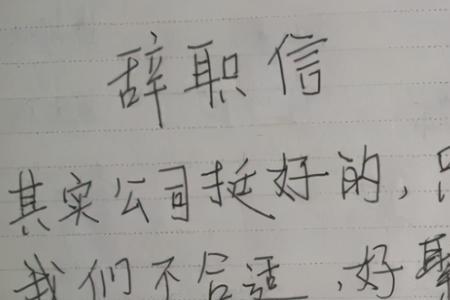 辞职信
其实公司挺好的,
我们不合适,好